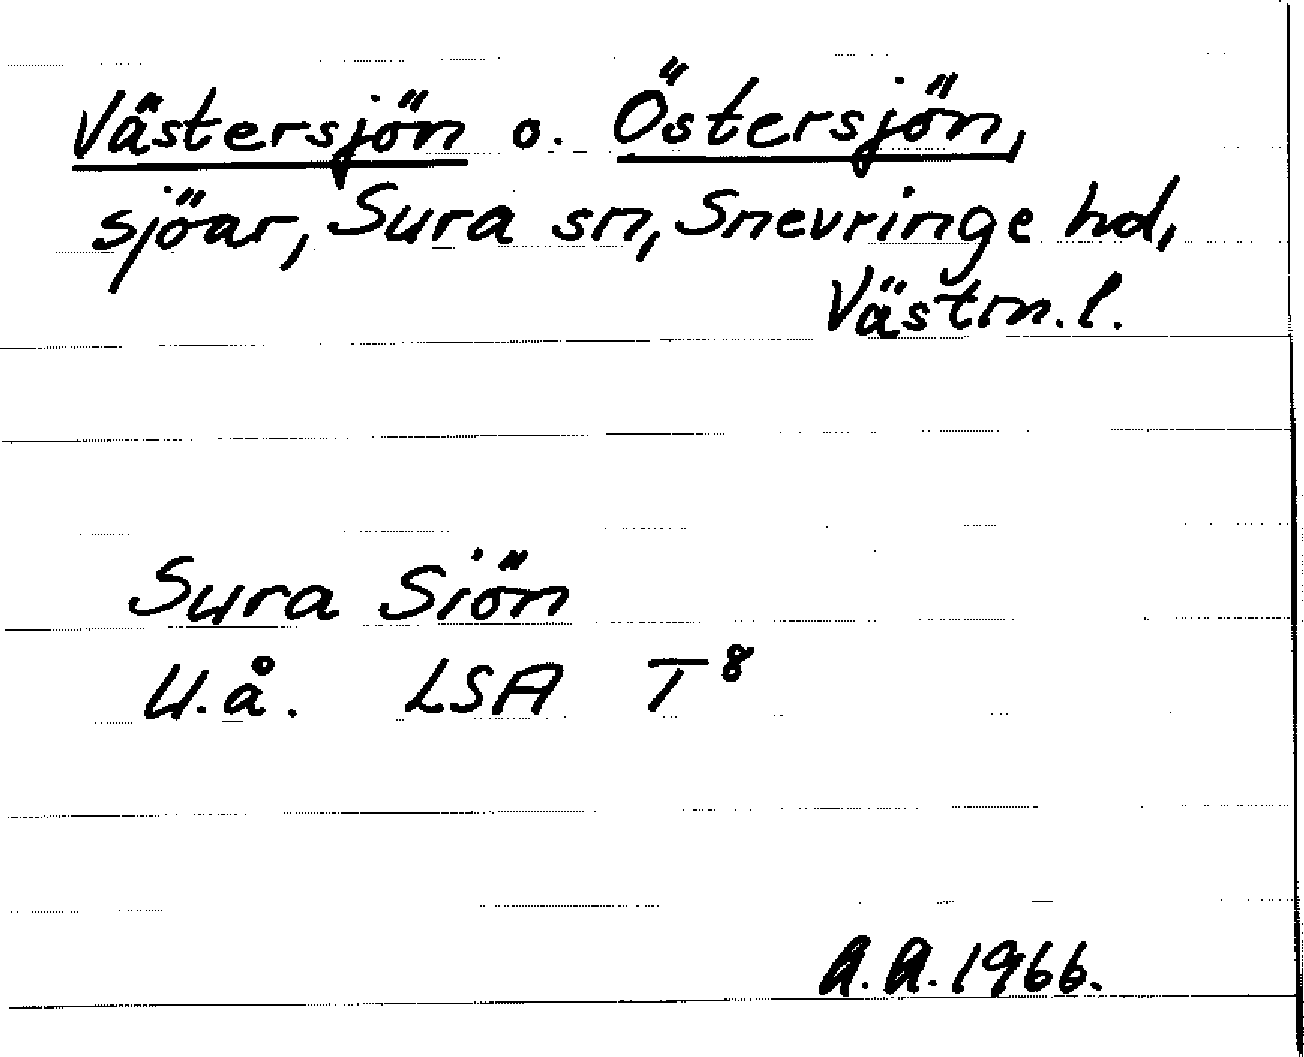 Västersjön o. Östersjön,
sjöar, Sura sn, Snevringe hd,
Västm.l.
Sura Siön
U.å. LSA T⁸
A.A.1966.